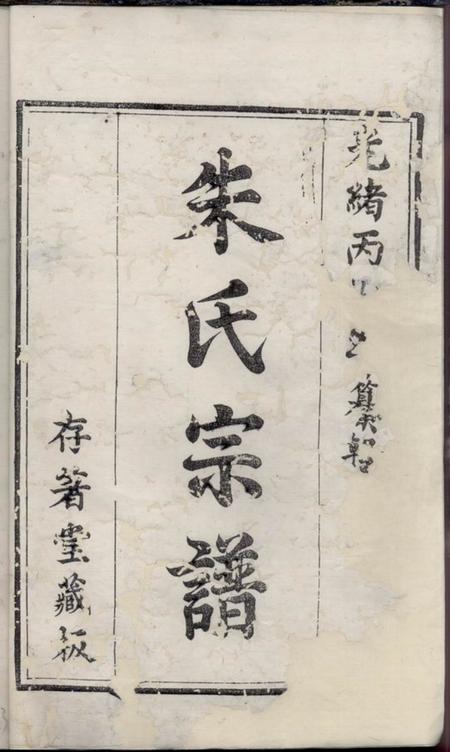 光緒丙
朱氏宗譜
存著堂藏板